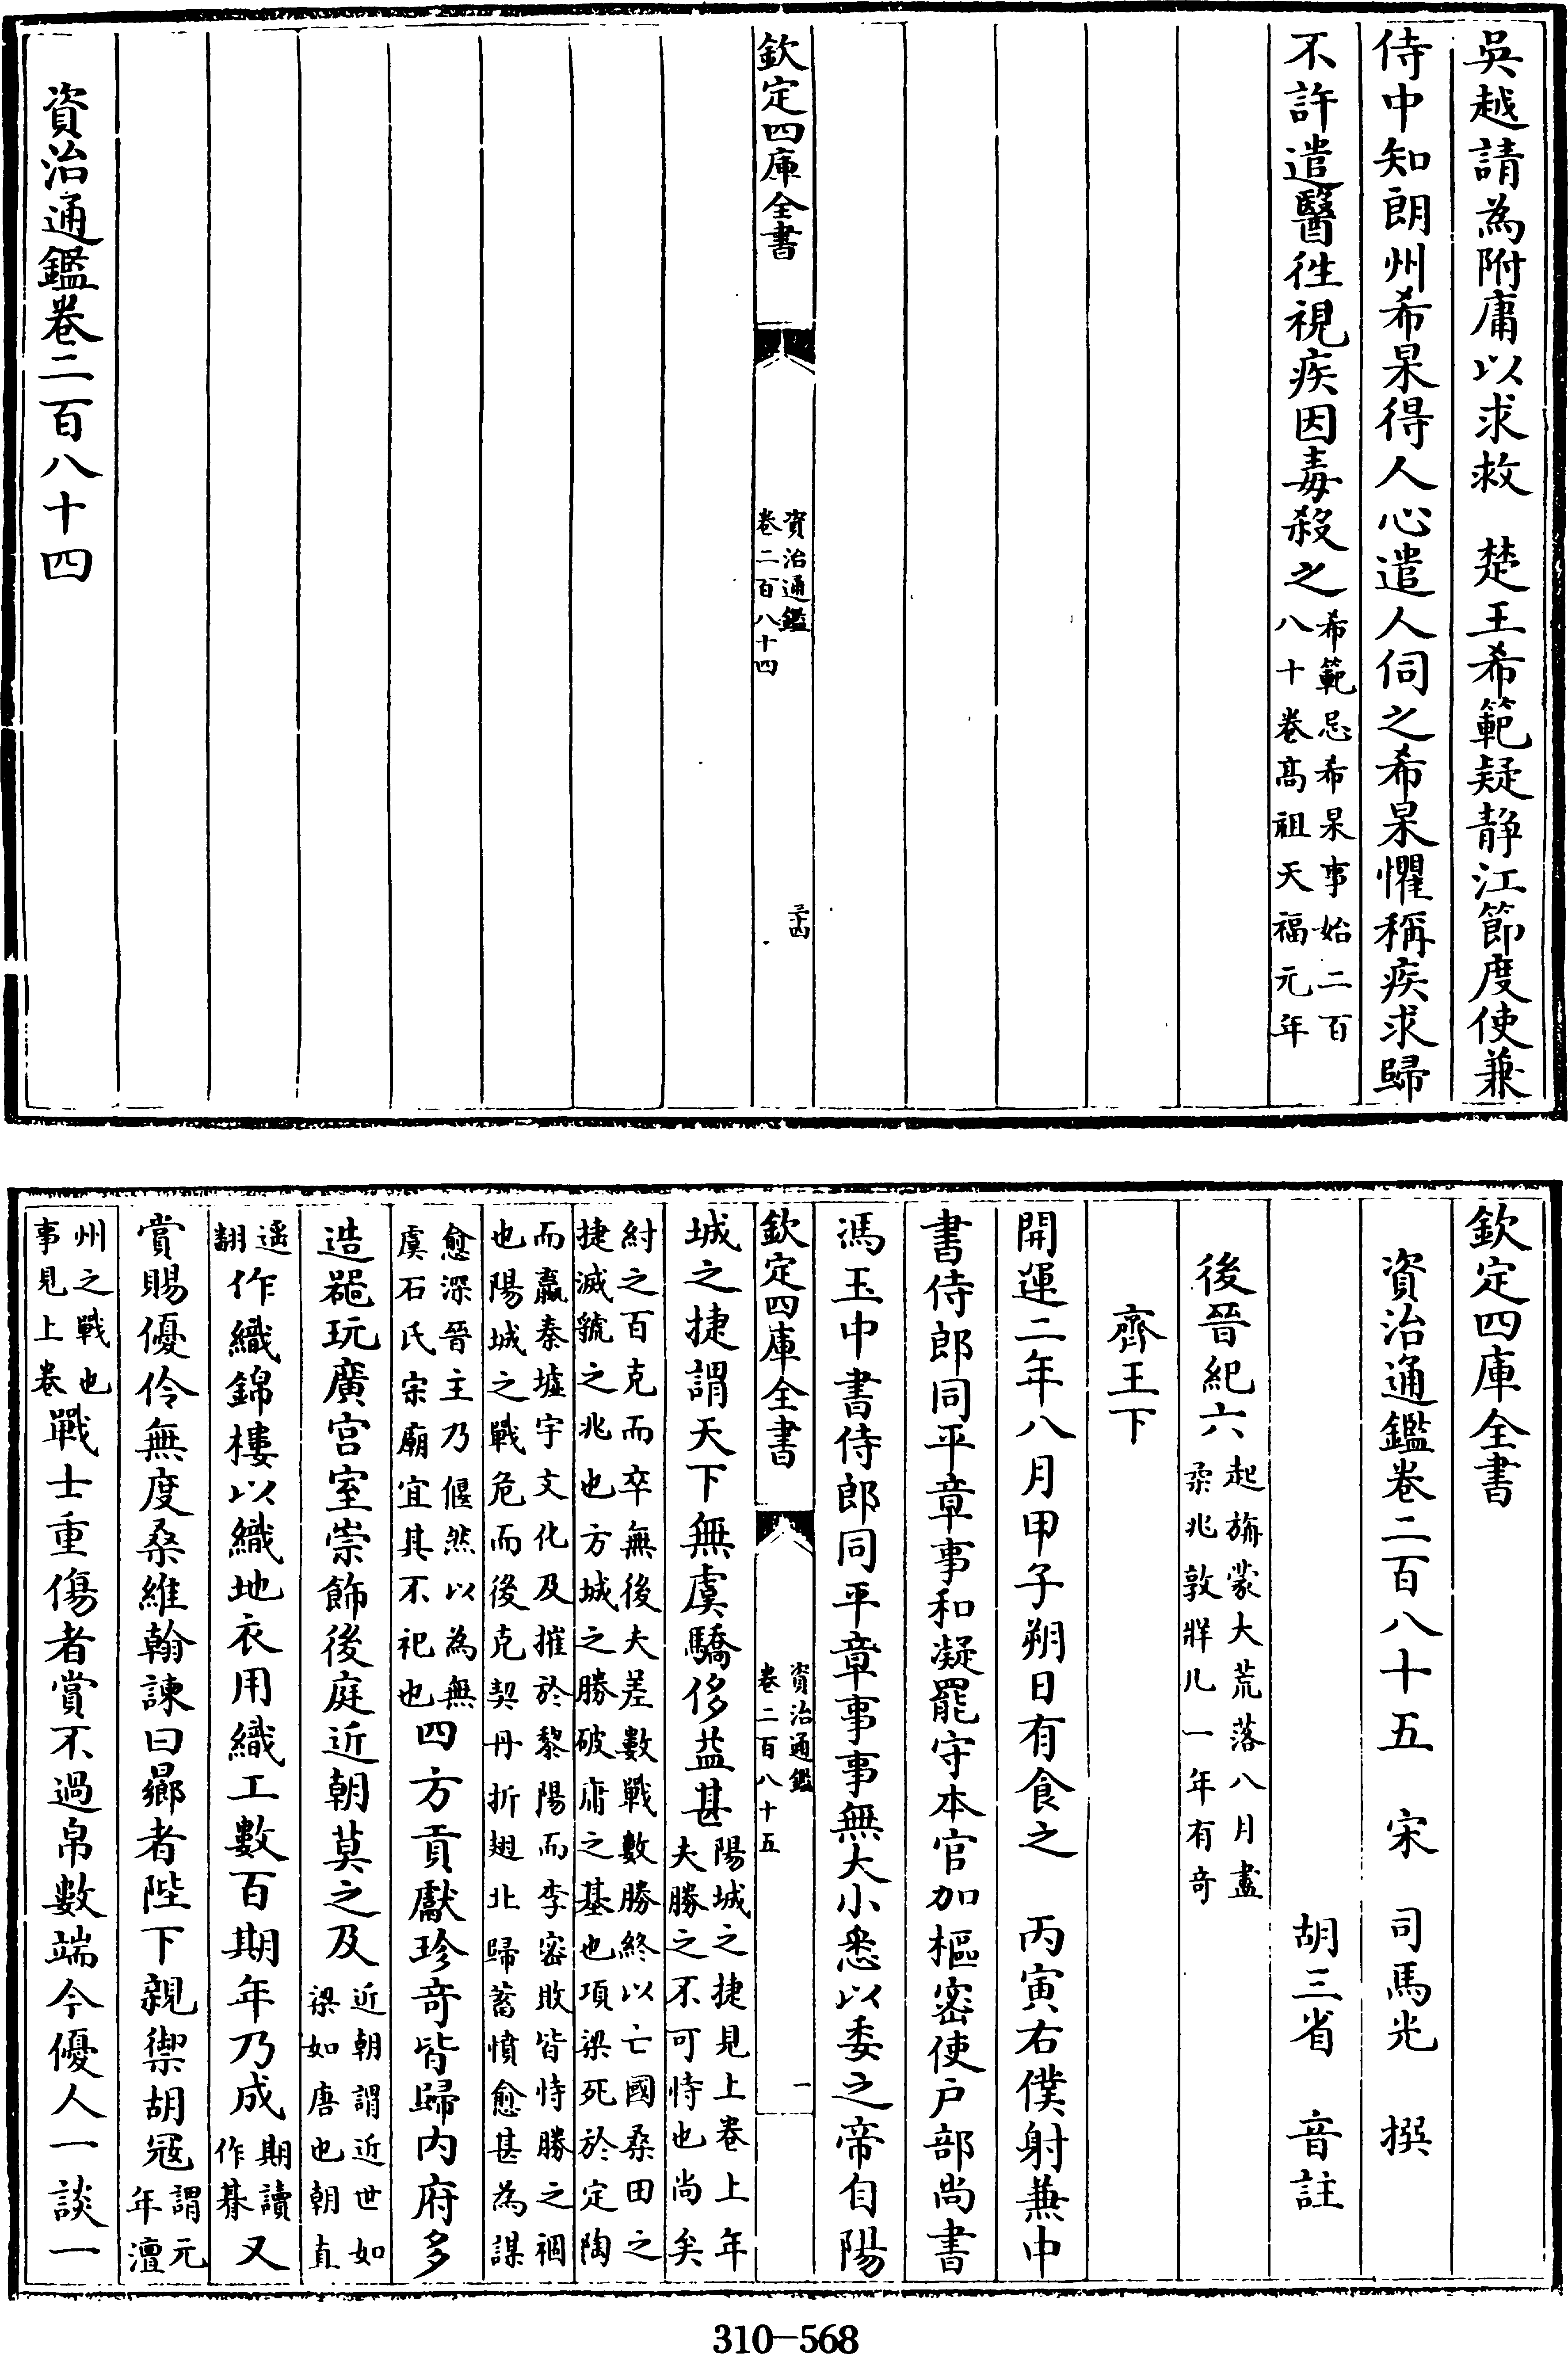 吳越請為附庸以求救　楚王希範疑静江節度使兼
侍中知朗州希杲得人心遣人伺之希杲懼稱疾求歸
不許遣醫徃視疾因毒殺之希範忌希杲事始二百八十卷髙祖天福元年
欽定四庫全書
資治通鑑
卷二百八十四
三十四
資治通鑑卷二百八十四
欽定四庫全書
資治通鑑卷二百八十五　宋　司馬光　撰
胡三省　音註
後晉紀六起旃蒙大荒落八月盡柔兆敦牂凡一年有奇
齊王下
開運二年八月甲子朔日有食之　丙寅右僕射兼中
書侍郎同平章事和凝罷守本官加樞密使户部尚書
馮玉中書侍郎同平章事事無大小悉以委之帝自陽
欽定四庫全書
資治通鑑
卷二百八十五
一
城之捷謂天下無虞驕侈益甚陽城之捷見上卷上年夫勝之不可恃也尚矣
紂之百克而卒無後夫差數戰數勝終以亡國桑田之捷滅虢之兆也方城之勝破庸之基也項梁死於定陶
而嬴秦墟宇文化及摧於黎陽而李密敗皆恃勝之禍也陽城之戰危而後克契丹折翅北歸蓄憤愈甚為謀
愈深晉主乃偃然以為無虞石氏宗廟宜其不祀也四方貢獻珍奇皆歸内府多
造噐玩廣宫室崇飾後庭近朝莫之及近朝謂近世如梁如唐也朝直
遥翻作織錦樓以織地衣用織工數百期年乃成期讀作朞又
賞賜優伶無度桑維翰諫曰曏者陛下親禦胡寇謂元年澶
州之戰也事見上卷戰士重傷者賞不過帛數端今優人一談一
310—568